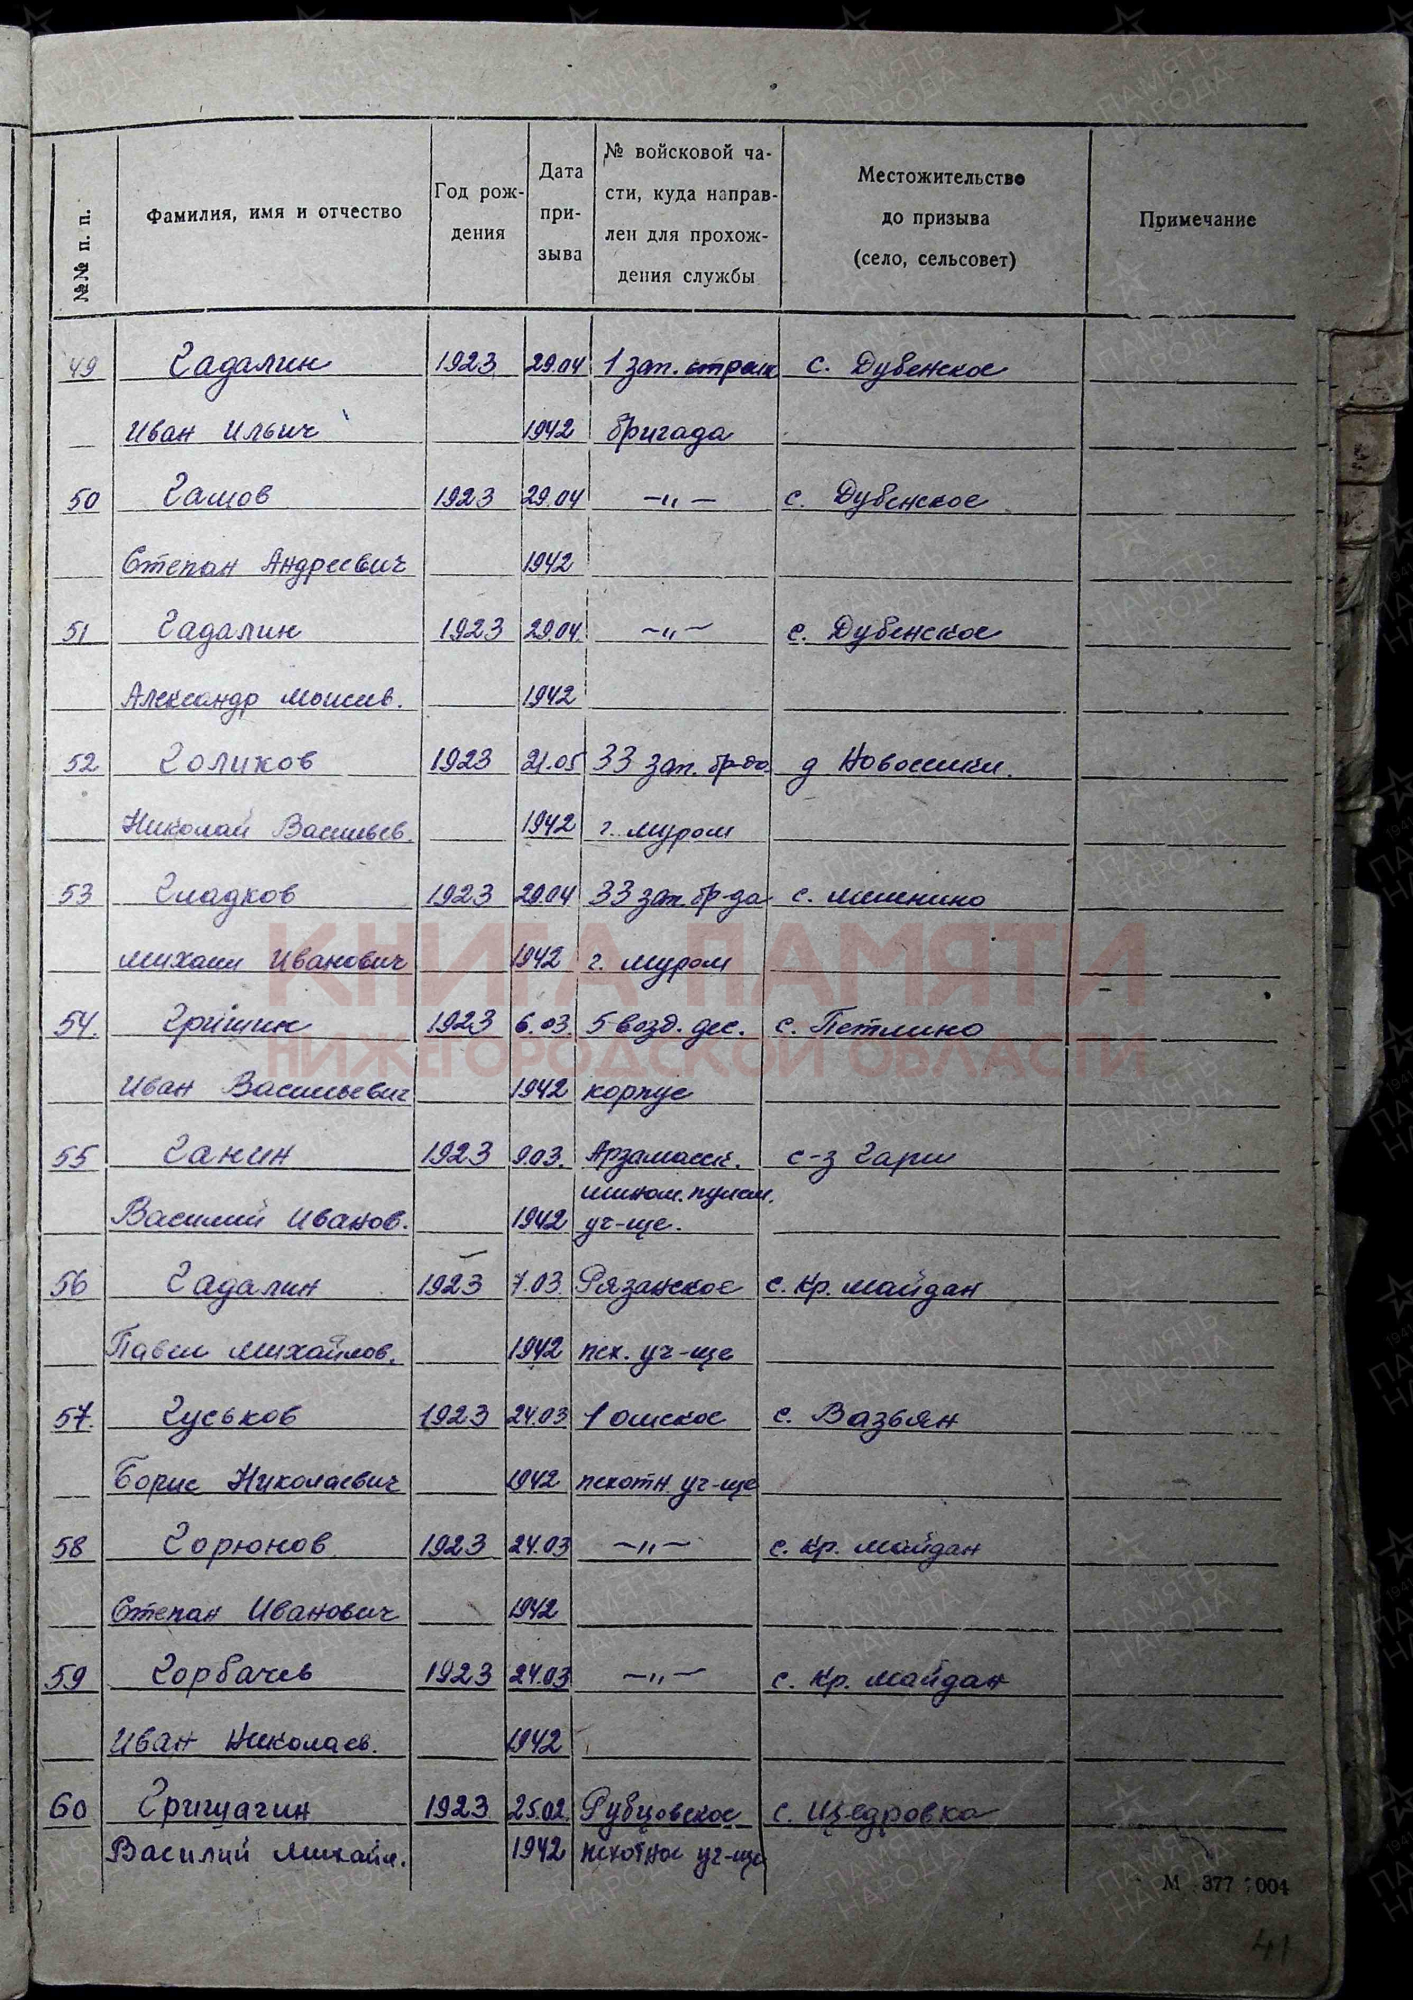 №№ п. п.
Фамилия, имя и отчество
Год рож-
дения
Дата
при-
зыва
№ войсковой ча-
сти, куда направ-
лен для прохож-
дения службы
Местожительство
до призыва
(село, сельсовет)
Примечание
49 Гадалин 1923 29.04 1 зап. стрелк с. Дубенское
Иван Ильич 1942 бригада
50 Гамов 1923 29.04 —„— с. Дубенское
Степан Андреевич 1942
51 Гадалин 1923 29.04. —„— с. Дубенское
Александр Моисев. 1942
52 Голиков 1923 21.05 33 зап. бр-да д Новоселки.
Николай Васильев. 1942 г. Муром
53 Гладков 1923 29.04 33 зап. бр-да с.
Михаил Иванович 1942 г. Муром
54. Гришин 1923 6.03. 5 возд. дес. с. Петлино
Иван Васильевич 1942 корпус
55 Ганин 1923 9.03. Арзамасск. с-з Гари
мином. пулем.
Василий Иванов. 1942 уч-ще.
56 Гадалин 1923 7.03. Рязанское с. Кр. Майдан
Павел Михайлов. 1942 пех. уч-ще
57. Гуськов 1923 24.03 1 омское с. Вазьян
Борис Николаевич 1942 пехотн. уч-ще
58 Горюнов 1923 24.03 —„— с. Кр. Майдан
Степан Иванович 1942
59 Горбачев 1923 24.03 —„— с. Кр. Майдан
Иван Николаев. 1942
60 Гришагин 1923 25.02. Рубцовское с. Щедровка
Василий Михайл. 1942 пехотное уч-ще
М 377 004
41
КНИГА ПАМЯТИ
НИЖЕГОРОДСКОЙ ОБЛАСТИ
ПАМЯТЬ
НАРОДА